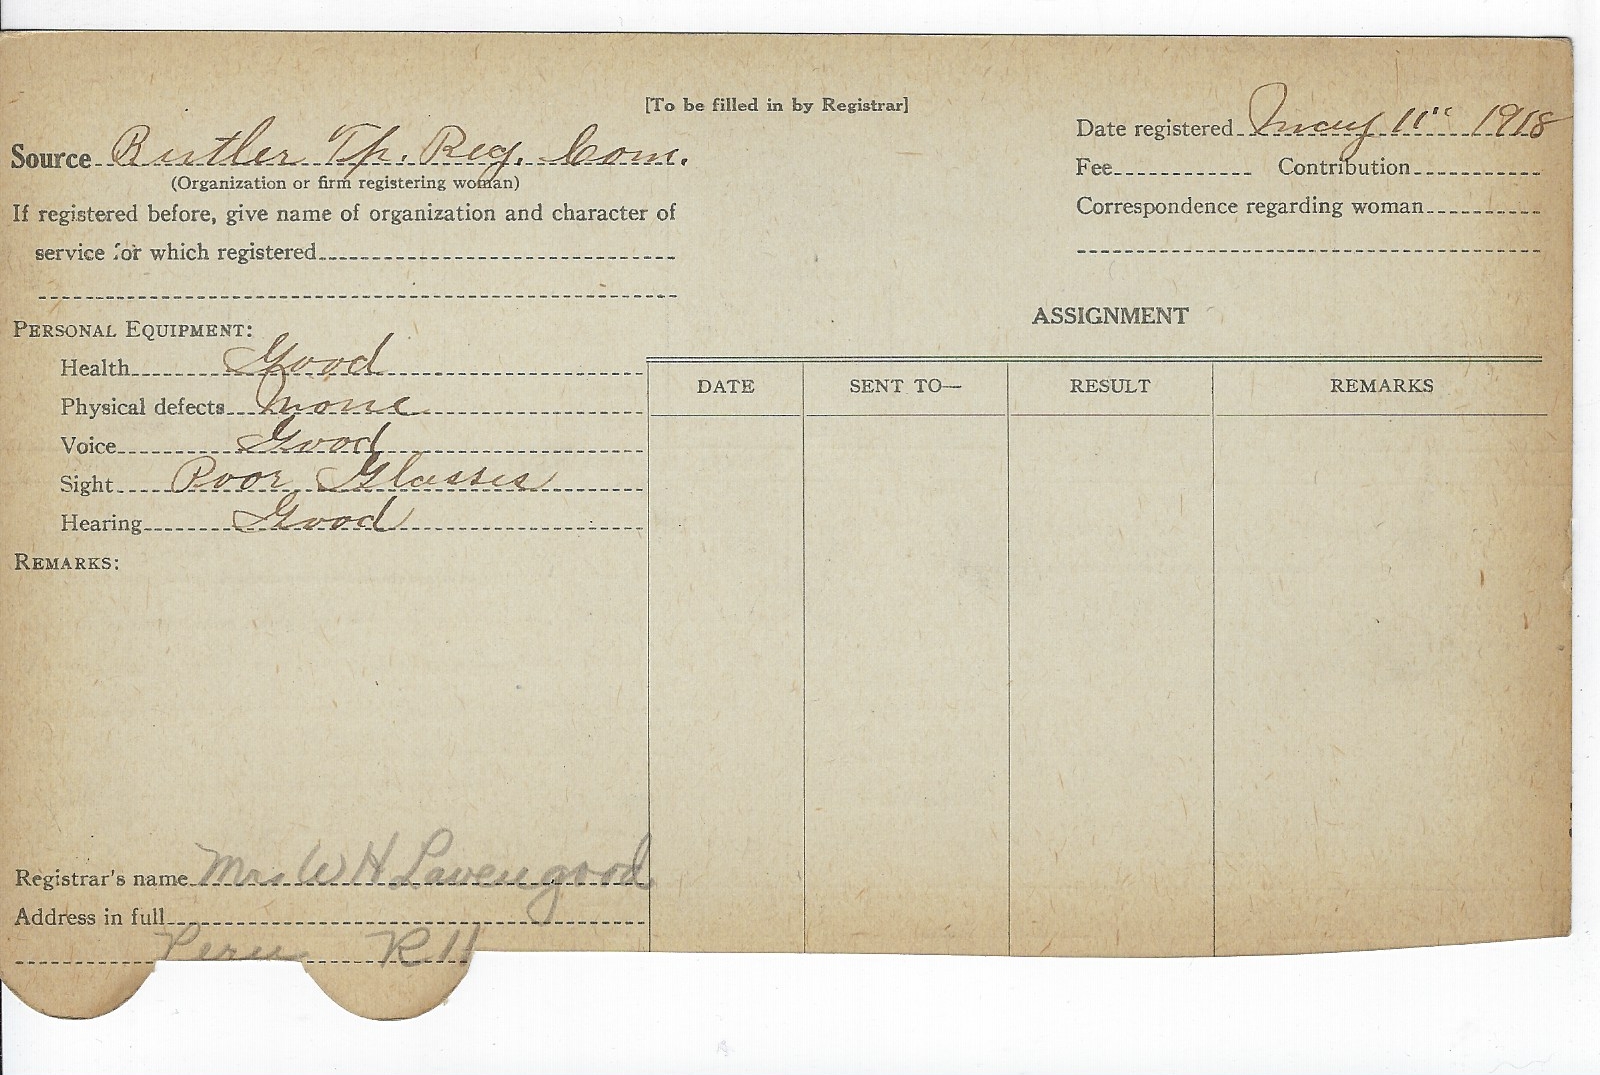 [To be filled in by Registrar]
Date registered May 11" 1918
Source Butler Tp. Reg. Com.
(Organization or firm registering woman)
Fee Contribution
If registered before, give name of organization and character of
service for which registered
Correspondence regarding woman
ASSIGNMENT
PERSONAL EQUIPMENT:
Health Good
Physical defects None
Voice Good
Sight Poor Glasses
Hearing Good
DATE SENT TO— RESULT REMARKS
REMARKS:
Registrar's name Mrs W H Lavengood
Address in full
Peru R 11